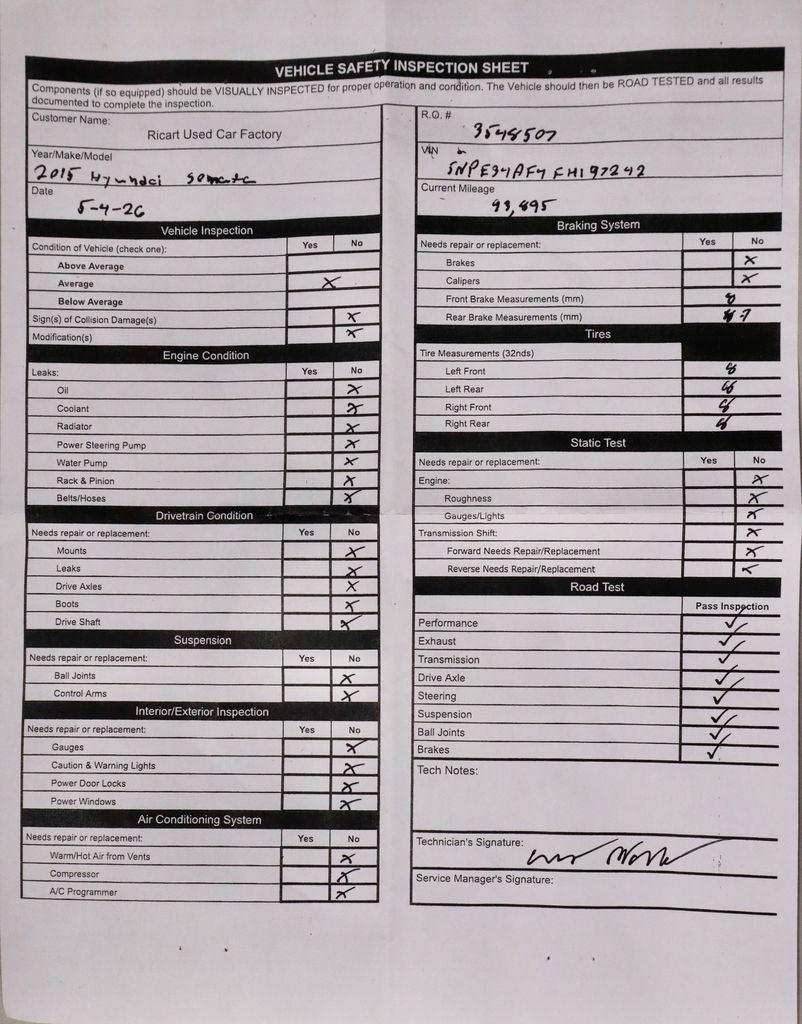 VEHICLE SAFETY INSPECTION SHEET
Components (if so equipped) should be VISUALLY INSPECTED for proper operation and condition. The Vehicle should then be ROAD TESTED and all results
documented to complete the inspection.
Customer Name:
Ricart Used Car Factory
Year/Make/Model
2015 Hyundai Sonata
Date
5-4-26
Vehicle Inspection
Condition of Vehicle (check one): Yes No
Above Average
Average X
Below Average
Sign(s) of Collision Damage(s) X
Modification(s) X
Engine Condition
Leaks: Yes No
Oil X
Coolant X
Radiator X
Power Steering Pump X
Water Pump X
Rack & Pinion X
Belts/Hoses X
Drivetrain Condition
Needs repair or replacement: Yes No
Mounts X
Leaks X
Drive Axles X
Boots X
Drive Shaft X
Suspension
Needs repair or replacement: Yes No
Ball Joints X
Control Arms X
Interior/Exterior Inspection
Needs repair or replacement: Yes No
Gauges X
Caution & Warning Lights X
Power Door Locks X
Power Windows X
Air Conditioning System
Needs repair or replacement: Yes No
Warm/Hot Air from Vents X
Compressor X
A/C Programmer X
R.O. #
3548507
VIN
5NPE34AF4FH197242
Current Mileage
93,895
Braking System
Needs repair or replacement: Yes No
Brakes X
Calipers X
Front Brake Measurements (mm) 8
Rear Brake Measurements (mm) 7
Tires
Tire Measurements (32nds)
Left Front 8
Left Rear 8
Right Front 8
Right Rear 8
Static Test
Needs repair or replacement: Yes No
Engine: X
Roughness X
Gauges/Lights X
Transmission Shift: X
Forward Needs Repair/Replacement X
Reverse Needs Repair/Replacement X
Road Test
Pass Inspection
Performance ✓
Exhaust ✓
Transmission ✓
Drive Axle ✓
Steering ✓
Suspension ✓
Ball Joints ✓
Brakes ✓
Tech Notes:
Technician's Signature:
Service Manager's Signature: